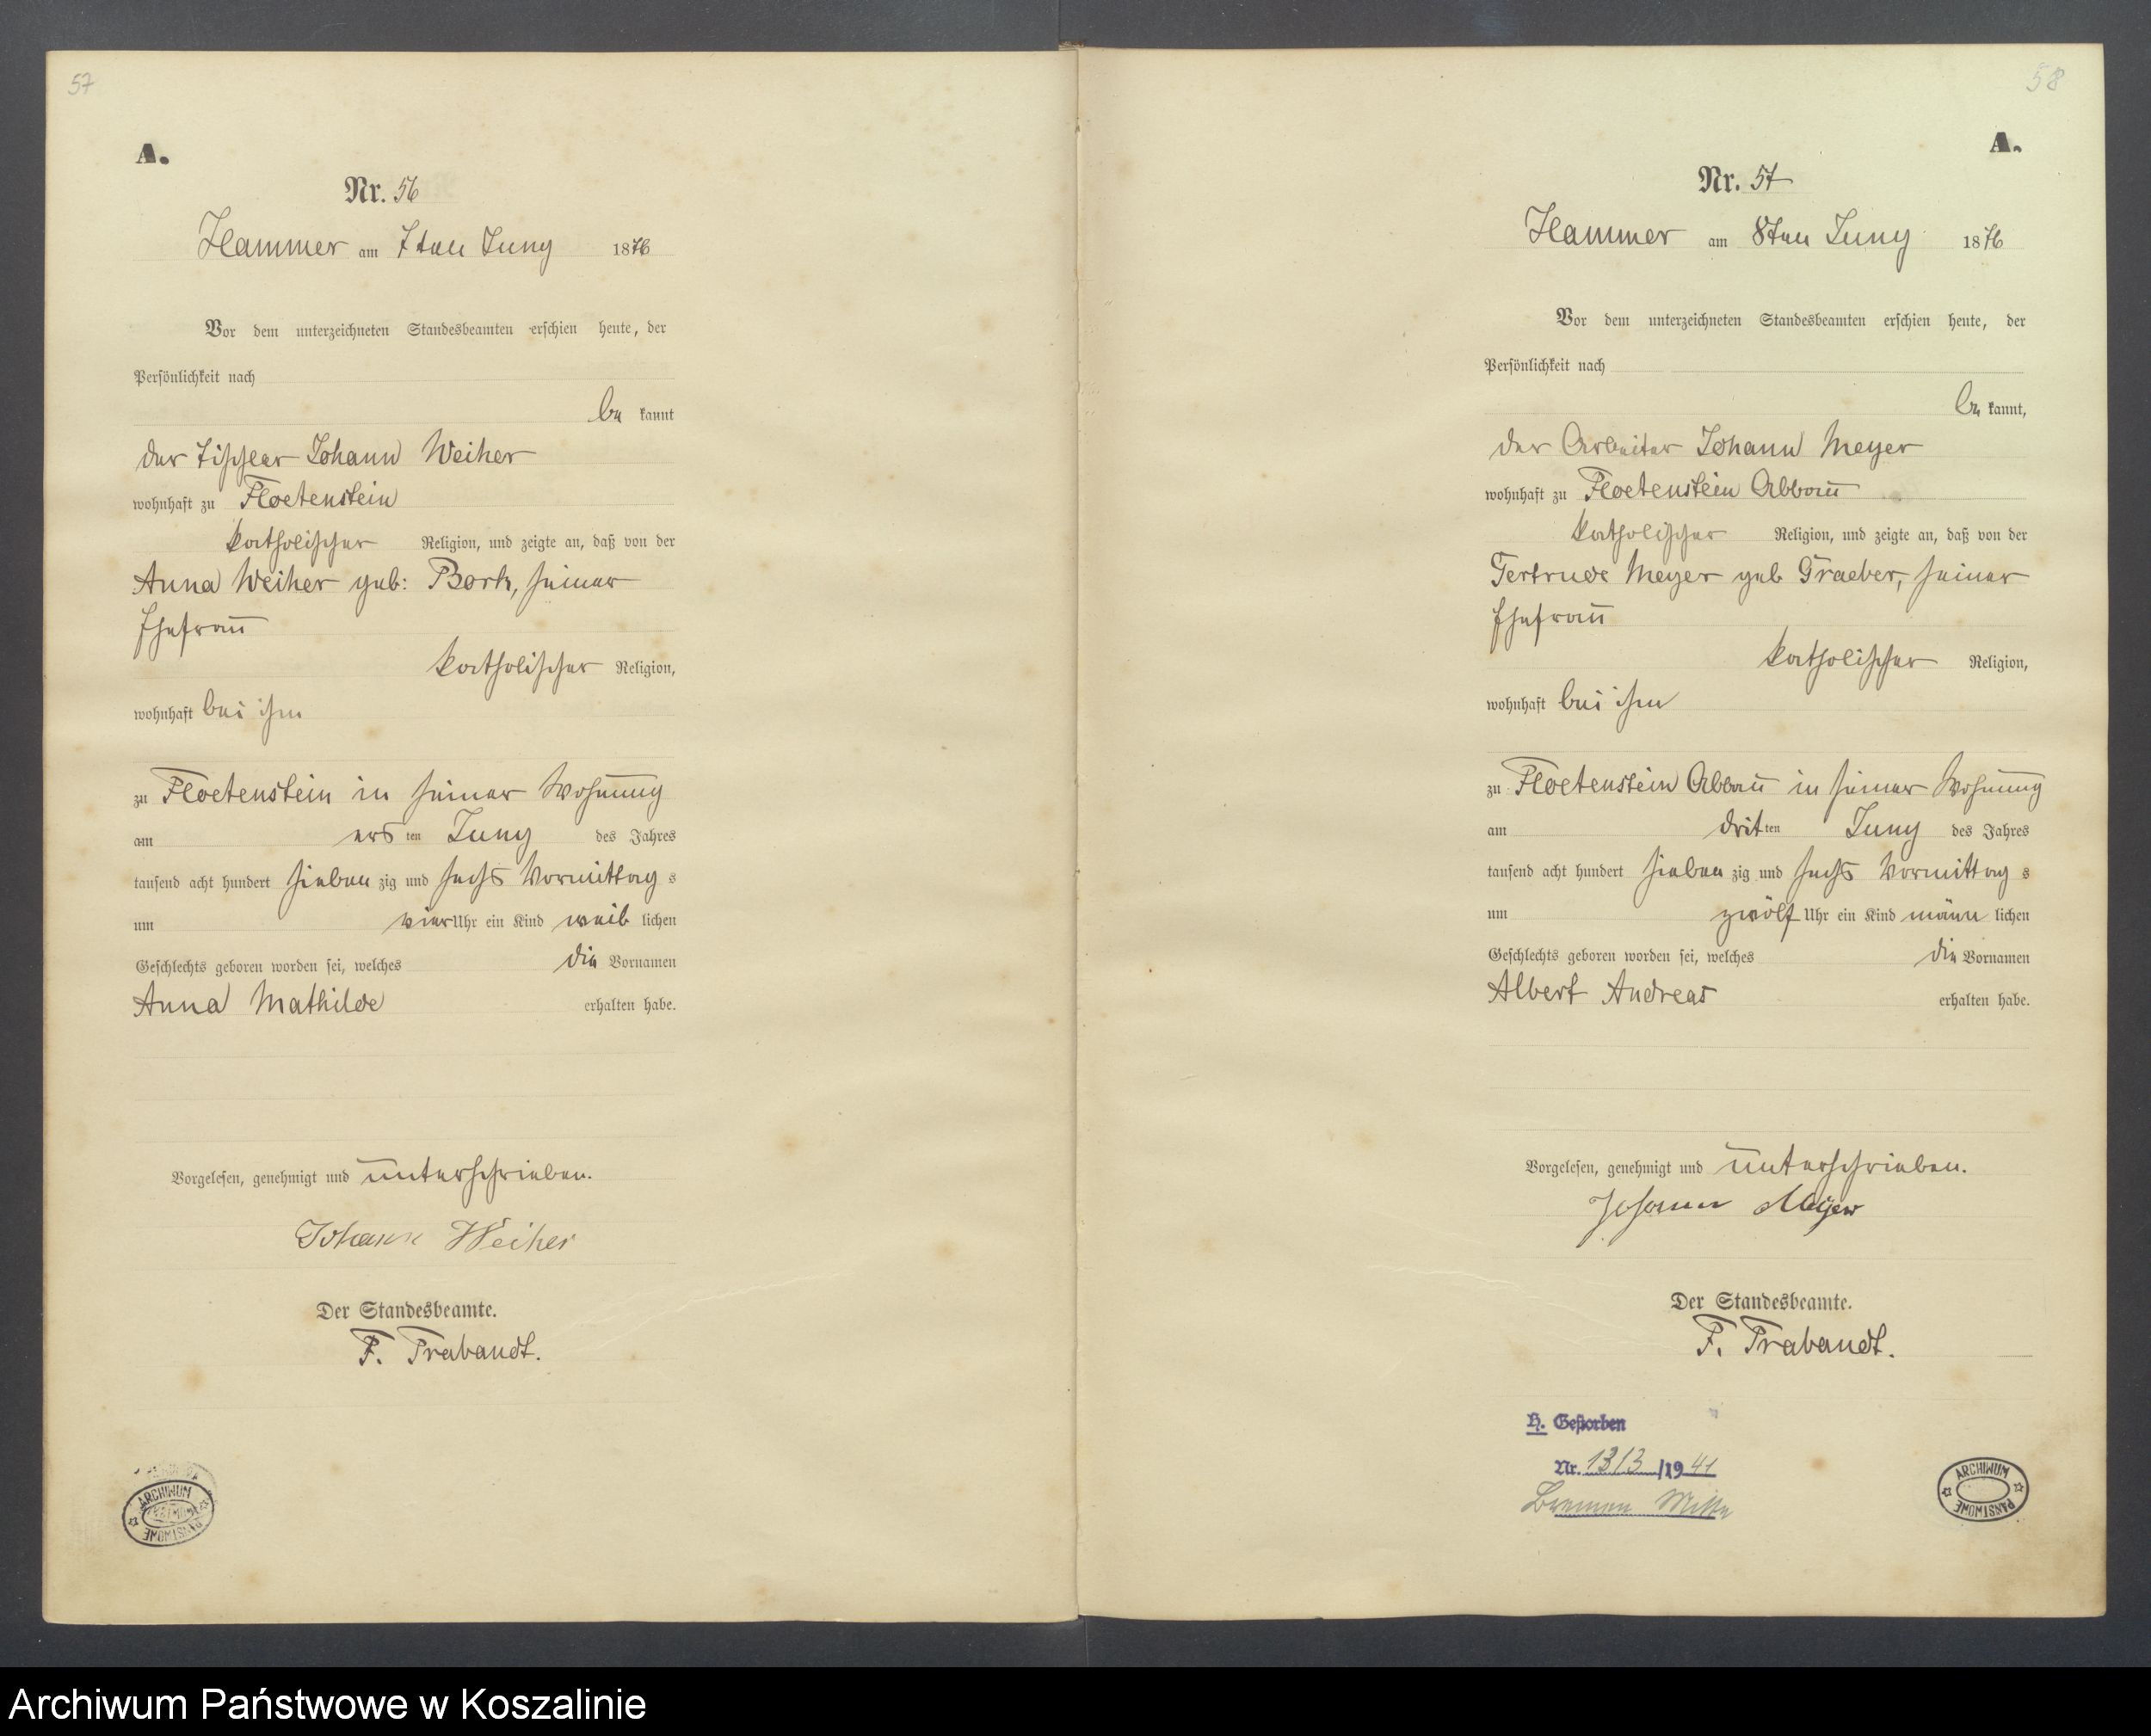 57
A.
Nr. 56
Hammer am 7ten Juny 1876
Vor dem unterzeichneten Standesbeamten erschien heute, der
Persönlichkeit nach
be kannt
der Tischler Johann Weiher
wohnhaft zu Floetenstein
katholischer Religion, und zeigte an, daß von der
Anna Weiher geb: Bork, seiner
Ehefrau
katholischer Religion,
wohnhaft bei ihm
zu Floetenstein in seiner Wohnung
am ers ten Juny des Jahres
tausend acht hundert sieben zig und sechs Vormittag s
um vier Uhr ein Kind weib lichen
Geschlechts geboren worden sei, welches die Vornamen
Anna Mathilde erhalten habe.
Vorgelesen, genehmigt und unterschrieben.
Johann Weiher
Der Standesbeamte.
F. Trabandt.
ARCHIWUM PAŃSTWOWE
58
A.
Nr. 57
Hammer am 8ten Juny 1876
Vor dem unterzeichneten Standesbeamten erschien heute, der
Persönlichkeit nach
be kannt,
der Arbeiter Johann Meyer
wohnhaft zu Floetenstein Abbau
katholischer Religion, und zeigte an, daß von der
Gertrude Meyer geb Graeber, seiner
Ehefrau
katholischer Religion,
wohnhaft bei ihm
zu Floetenstein Abbau in seiner Wohnung
am drit ten Juny des Jahres
tausend acht hundert sieben zig und sechs Vormittag s
um zwölf Uhr ein Kind männ lichen
Geschlechts geboren worden sei, welches die Vornamen
Albert Andreas erhalten habe.
Vorgelesen, genehmigt und unterschrieben.
Johann Meyer
Der Standesbeamte.
F. Trabandt.
H. Gestorben
Nr. 1313 /1941
Bremen Mitte
ARCHIWUM PAŃSTWOWE
Archiwum Państwowe w Koszalinie